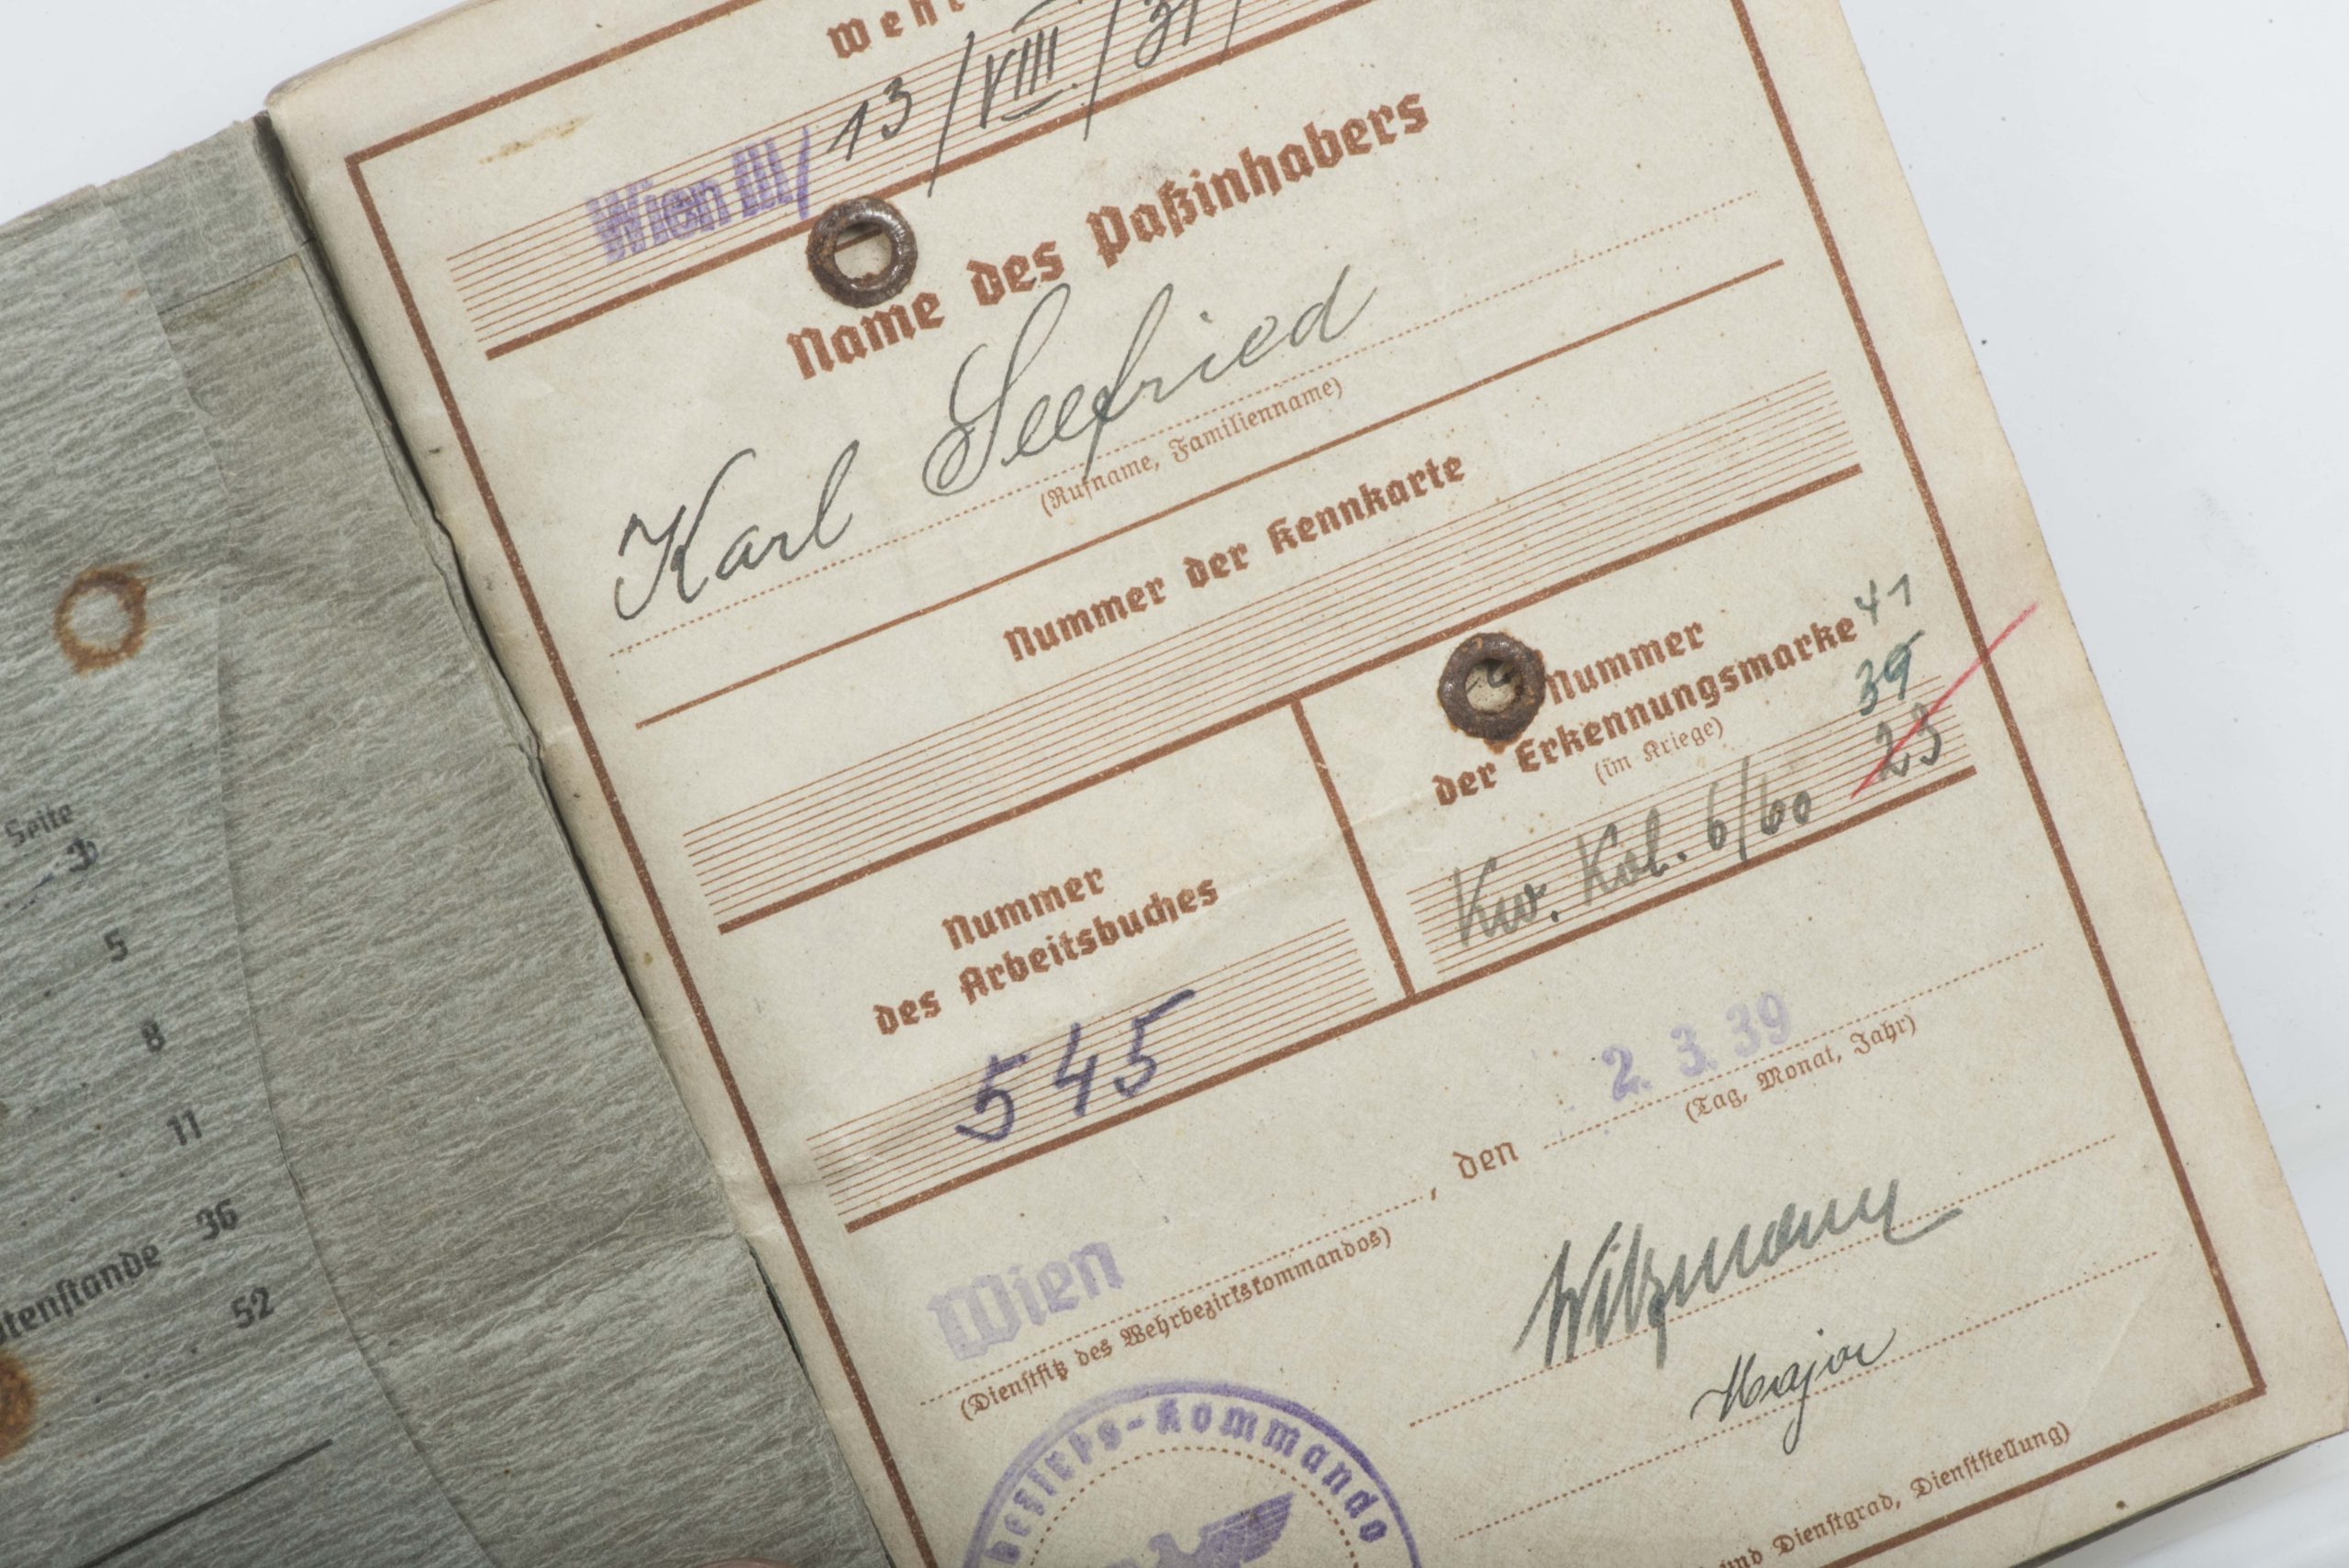 Wien III/ 13/VIII/
Name des Paßinhabers
Karl Seefried
(Rufname, Familienname)
Nummer der Kennkarte
Nummer
des Arbeitsbuches
545
Nummer
der Erkennungsmarke
(im Kriege)
41
39
23
Kw. Kol. 6/60
Wien, den 2. 3. 39
(Dienstsitz des Wehrbezirkskommandos)
(Tag, Monat, Jahr)
Witzmann
Major
und Dienstgrad, Dienststellung)
bezirks-Kommando
Seite
3
5
8
11
36
52